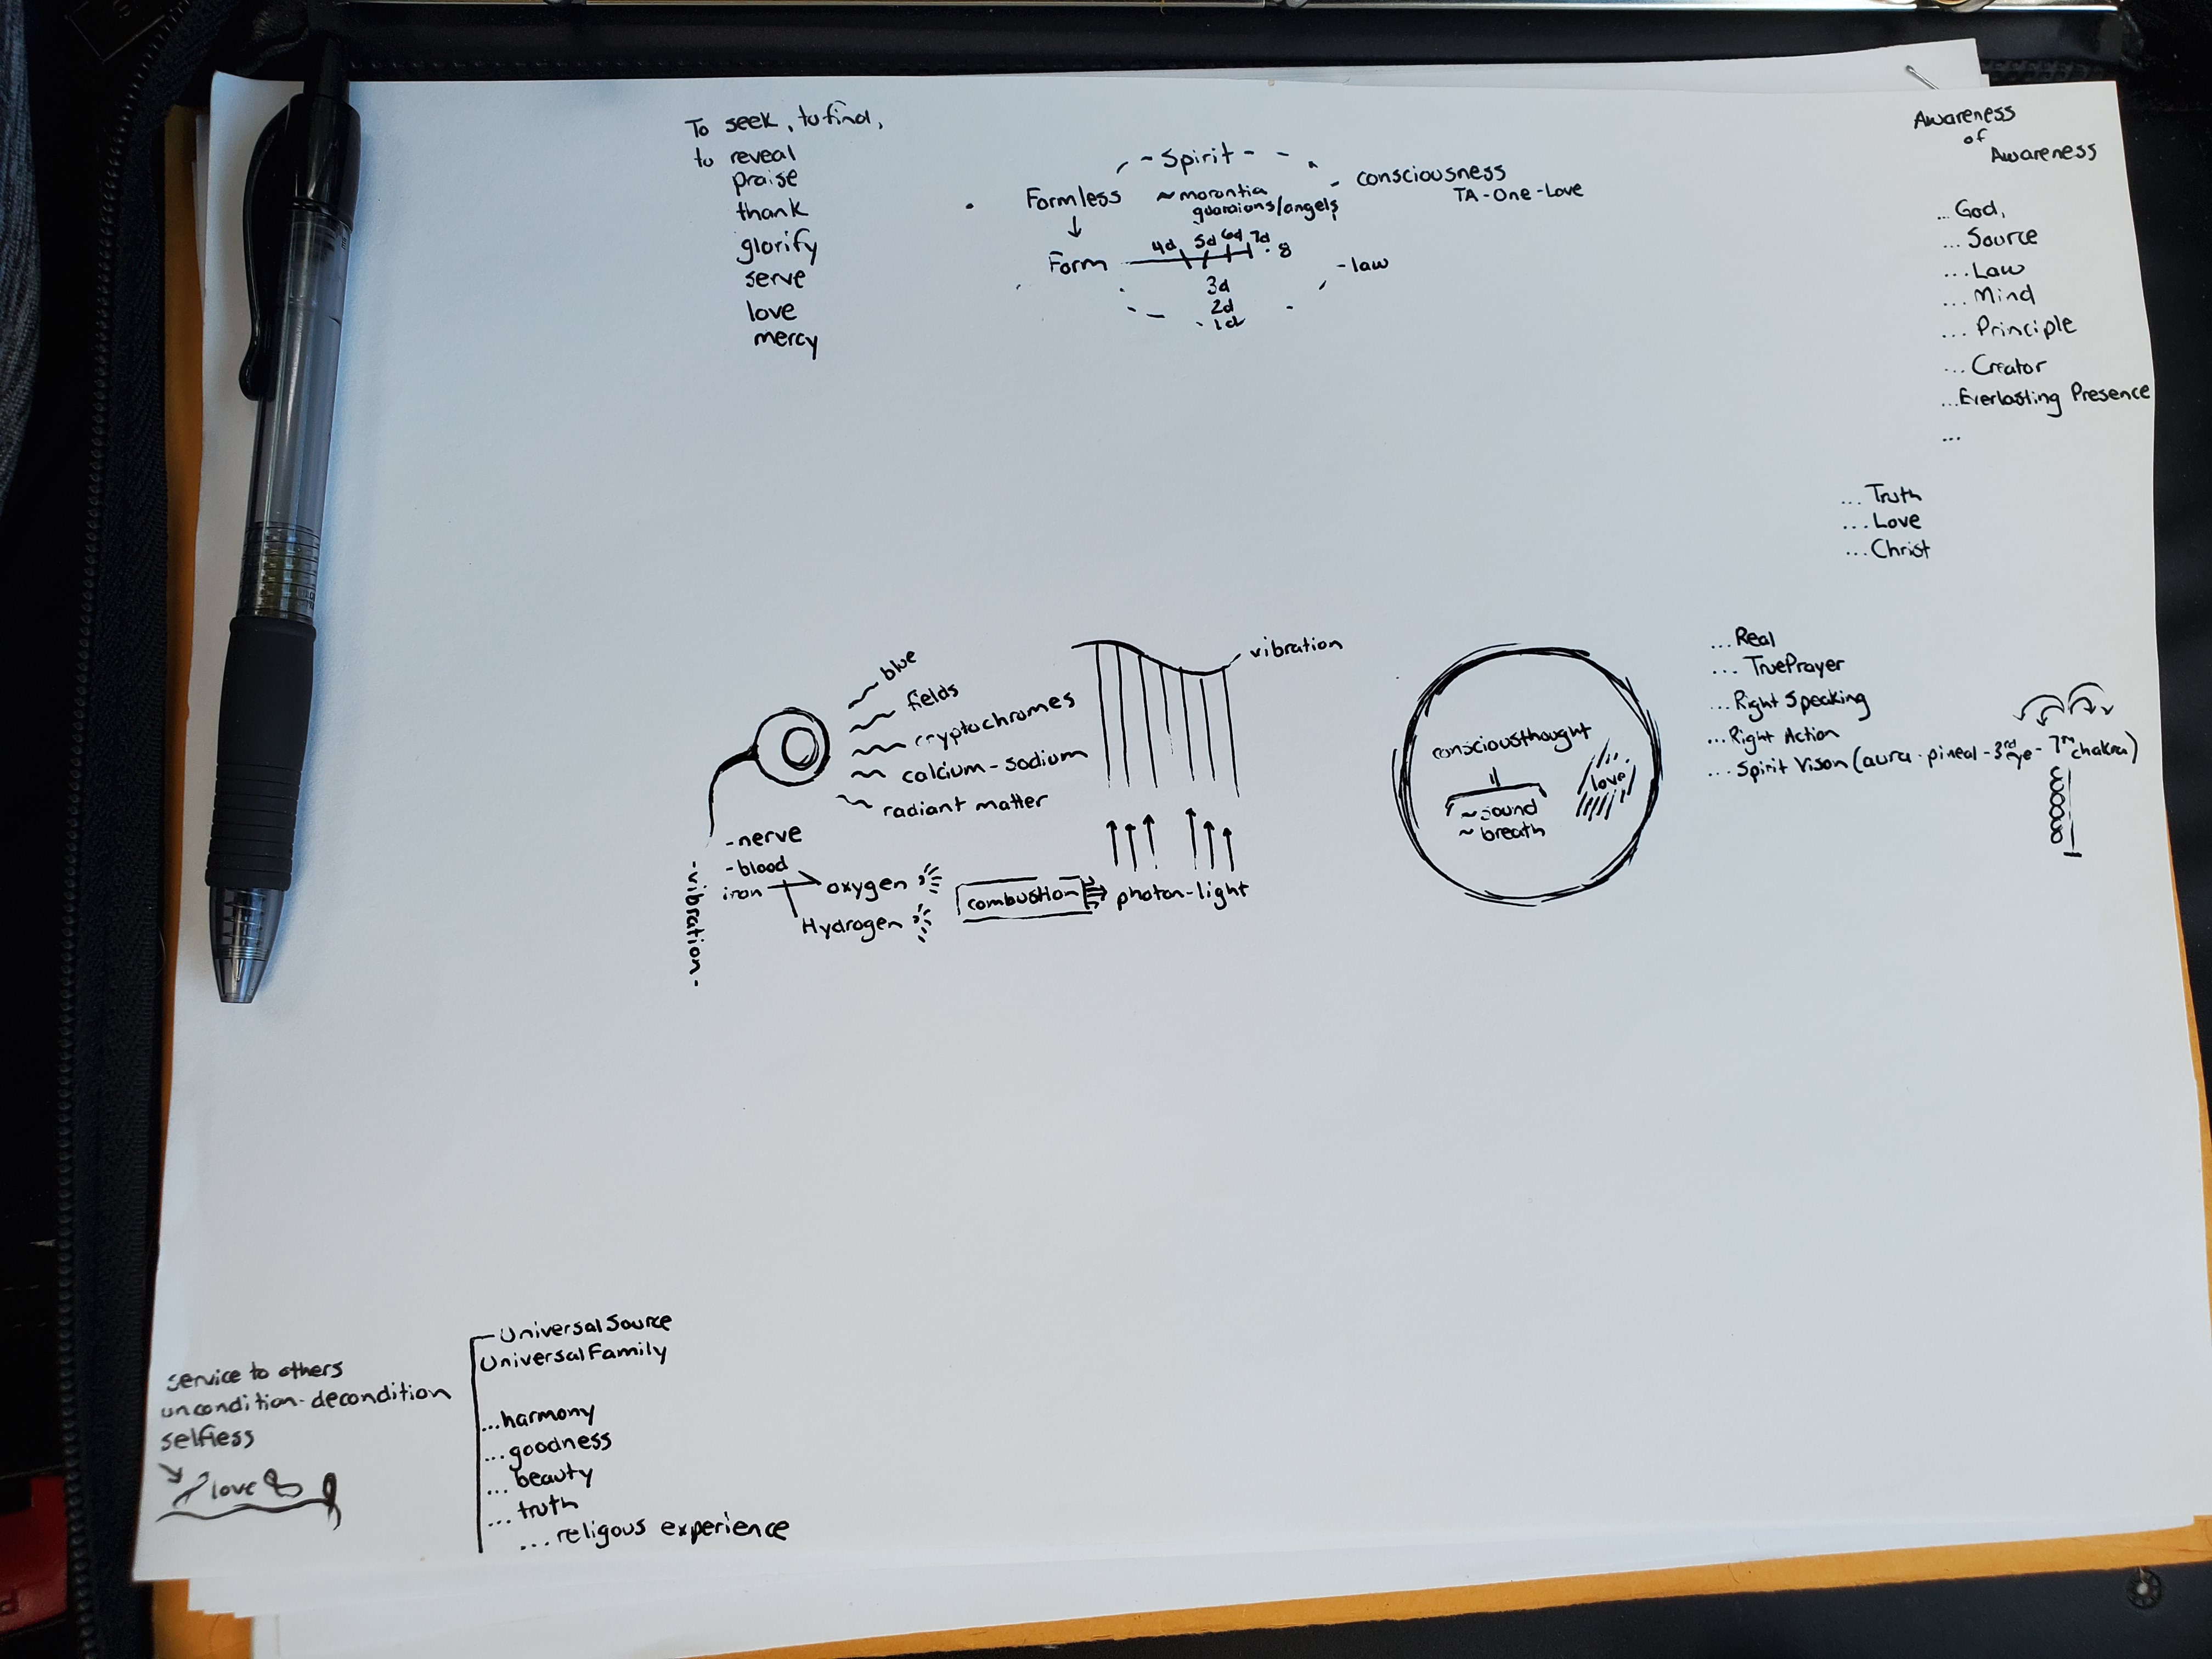 To seek, to find,
to reveal
praise
thank
glorify
serve
love
mercy
~Spirit-
Formless
~morontia
guardians/angels
consciousness
TA-One-Love
4d 5d 6d 7d 8
Form
-law
3d
2d
1d
Awareness
of
Awareness
...God,
...Source
...Law
...Mind
...Principle
...Creator
...Everlasting Presence
...
...Truth
...Love
...Christ
blue
fields
cryptochromes
calcium-sodium
radiant matter
vibration
-nerve
-blood
iron
oxygen
Hydrogen
-vibration-
combustion
photon-light
consciousthought
love
~sound
~breath
...Real
...TruePrayer
...Right Speaking
...Right Action
...Spirit Vison (aura-pineal-3rd eye-7th chakra)
service to others
uncondition-decondition
selfless
love
UniversalSource
UniversalFamily
...harmony
...goodness
...beauty
...truth
...religous experience